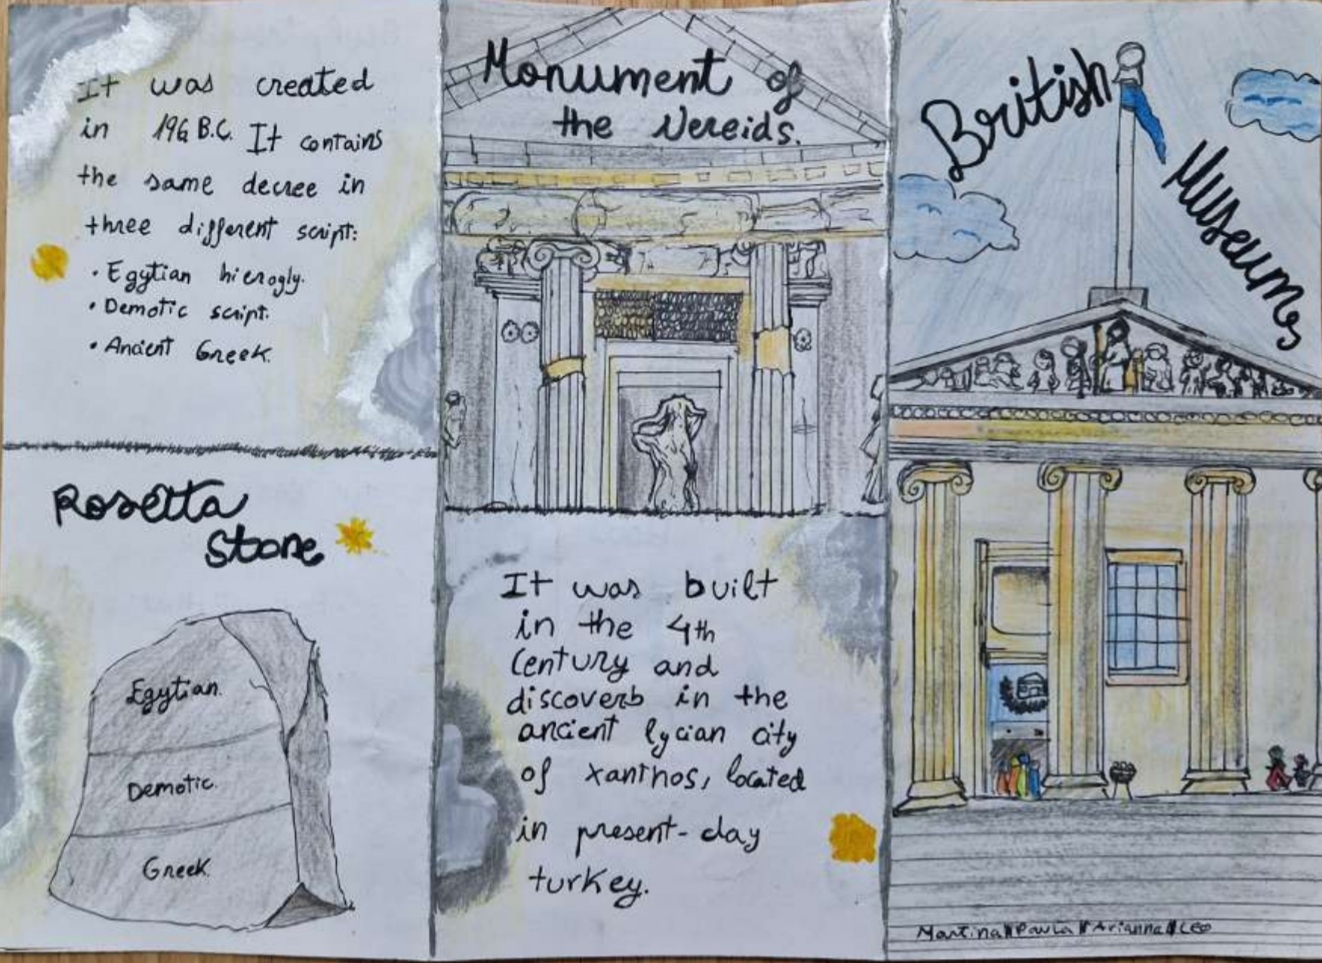 It was created
in 196 B.C. It contains
the same decree in
three different script:
• Egytian hierogly.
• Demotic script.
• Ancient Greek.
Rosetta
Stone
Egytian.
Demotic.
Greek.
Monument of
the Nereids.
It was built
in the 4th
Century and
discoverb in the
ancient lycian city
of xanthos, located
in present-day
turkey.
British
Museum
Martina Paula Arianna Leo